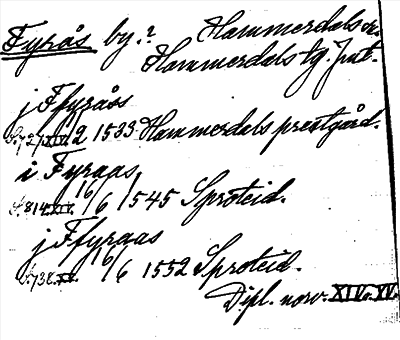 Fyrås by.? Hammerdals sn.
Hammerdals tg. Jmt.
j Ffyråås
S. 737 XIV. 2 1533 Hammerdals prestgård.
i Fyraas
S. 814 XV. 16/6 1545 Sproteid.
j Ffyraas
S. 738 XV. 16/6 1552 Sproteid.
Dipl. norv. XIV. XV.